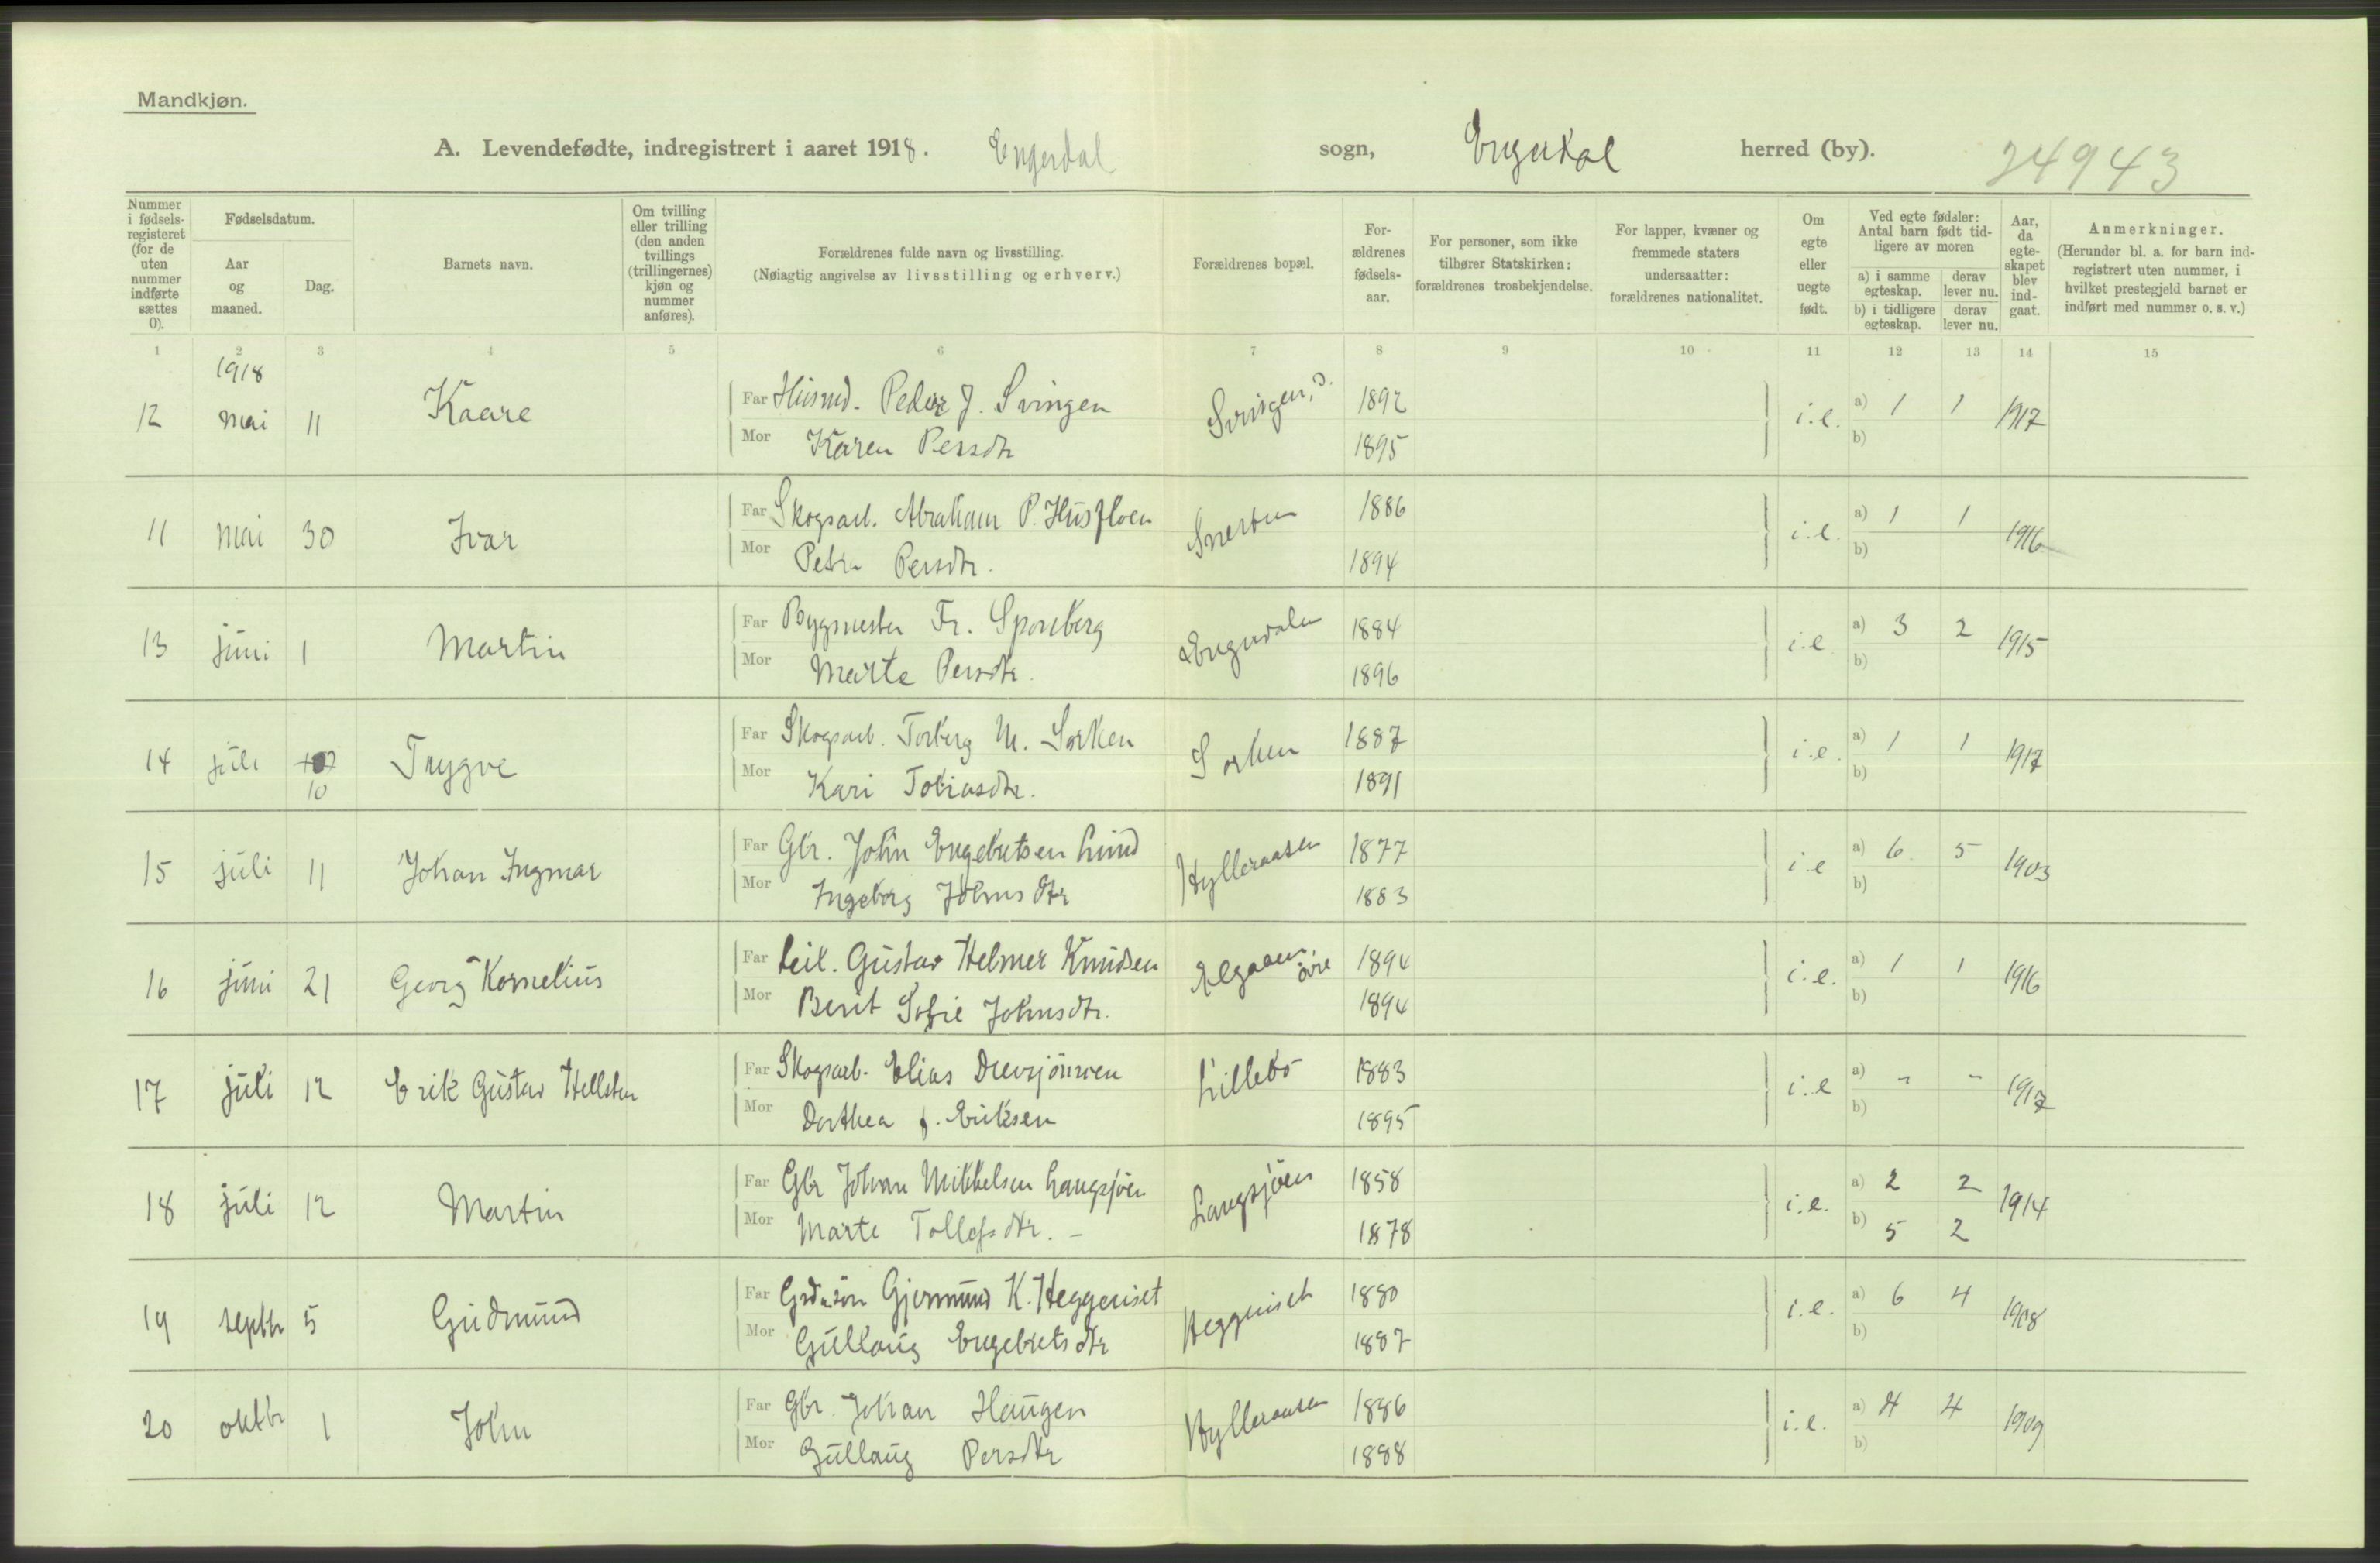 Mandkjøn.
A. Levendefødte, indregistrert i aaret 1918. Engerdal sogn, Engerdal herred (by). 24943
Nummer i fødsels-registeret (for de uten nummer indførte sættes 0).
Fødselsdatum.
Aar og maaned.
Dag.
Barnets navn.
Om tvilling eller trilling (den anden tvillings (trillingernes) kjøn og nummer anføres).
Forældrenes fulde navn og livsstilling.
(Nøiagtig angivelse av livsstilling og erhverv.)
Forældrenes bopæl.
For-ældrenes fødsels-aar.
For personer, som ikke tilhører Statskirken: forældrenes trosbekjendelse.
For lapper, kvæner og fremmede staters undersaatter: forældrenes nationalitet.
Om egte eller uegte født.
Ved egte fødsler: Antal barn født tid-ligere av moren
a) i samme egteskap. derav lever nu.
b) i tidligere egteskap. derav lever nu.
Aar, da egte-skapet blev ind-gaat.
Anmerkninger.
(Herunder bl. a. for barn ind-registrert uten nummer, i hvilket prestegjeld barnet er indført med nummer o. s. v.)
1 2 3 4 5 6 7 8 9 10 11 12 13 14 15
1918
12 mai 11 Kaare Far Husmd. Peder J. Svingen Svingen, 1892 i.e. a) 1 1 1917
Mor Karen Persdtr 1895 b)
11 mai 30 Ivar Far Skogsarb. Abraham P. Husfloen Snerten 1886 i.e. a) 1 1 1916
Mor Petra Persdtr. 1894 b)
13 juni 1 Martin Far Bygmester Fr. Sporrberg Engerdalen 1884 i.e a) 3 2 1915
Mor Marte Persdtr. 1896 b)
14 juli 10 Trygve Far Skogsarb. Torberg M. Sorken Sorken 1887 i.e. a) 1 1 1917
Mor Kari Tobiasdtr. 1891 b)
15 juli 11 Johan Ingmar Far Gbr. John Engebretsen Lund Hylleraasen 1877 i.e a) 6 5 1903
Mor Ingeborg Johnsdtr 1883 b)
16 juni 21 Georg Kornelius Far Leil. Gustav Helmer Knudsen Elgaaen øvre 1894 i.e. a) 1 1 1916
Mor Berit Sofie Johnsdtr. 1894 b)
17 juli 12 Erik Gustav Hellsten Far Skogsarb. Elias Drevsjömoen Lillebo 1883 i.e a) - - 1917
Mor Dorthea f. Eriksen 1895 b)
18 juli 12 Martin Far Gbr Johan Mikkelsen Langsjöen Langsjöen 1858 i.e. a) 2 2 1914
Mor Marte Tollefsdtr. - 1878 b) 5 2
19 septbr 5 Gudmund Far Grdsön Gjermund K. Heggeriset Heggeriset 1880 i.e. a) 6 4 1908
Mor Gullaug Engebretsdtr 1887 b)
20 oktbr 1 John Far Gbr. Johan Haugen Hylleraasen 1886 i.e. a) 4 4 1909
Mor Gullaug Persdtr 1888 b)